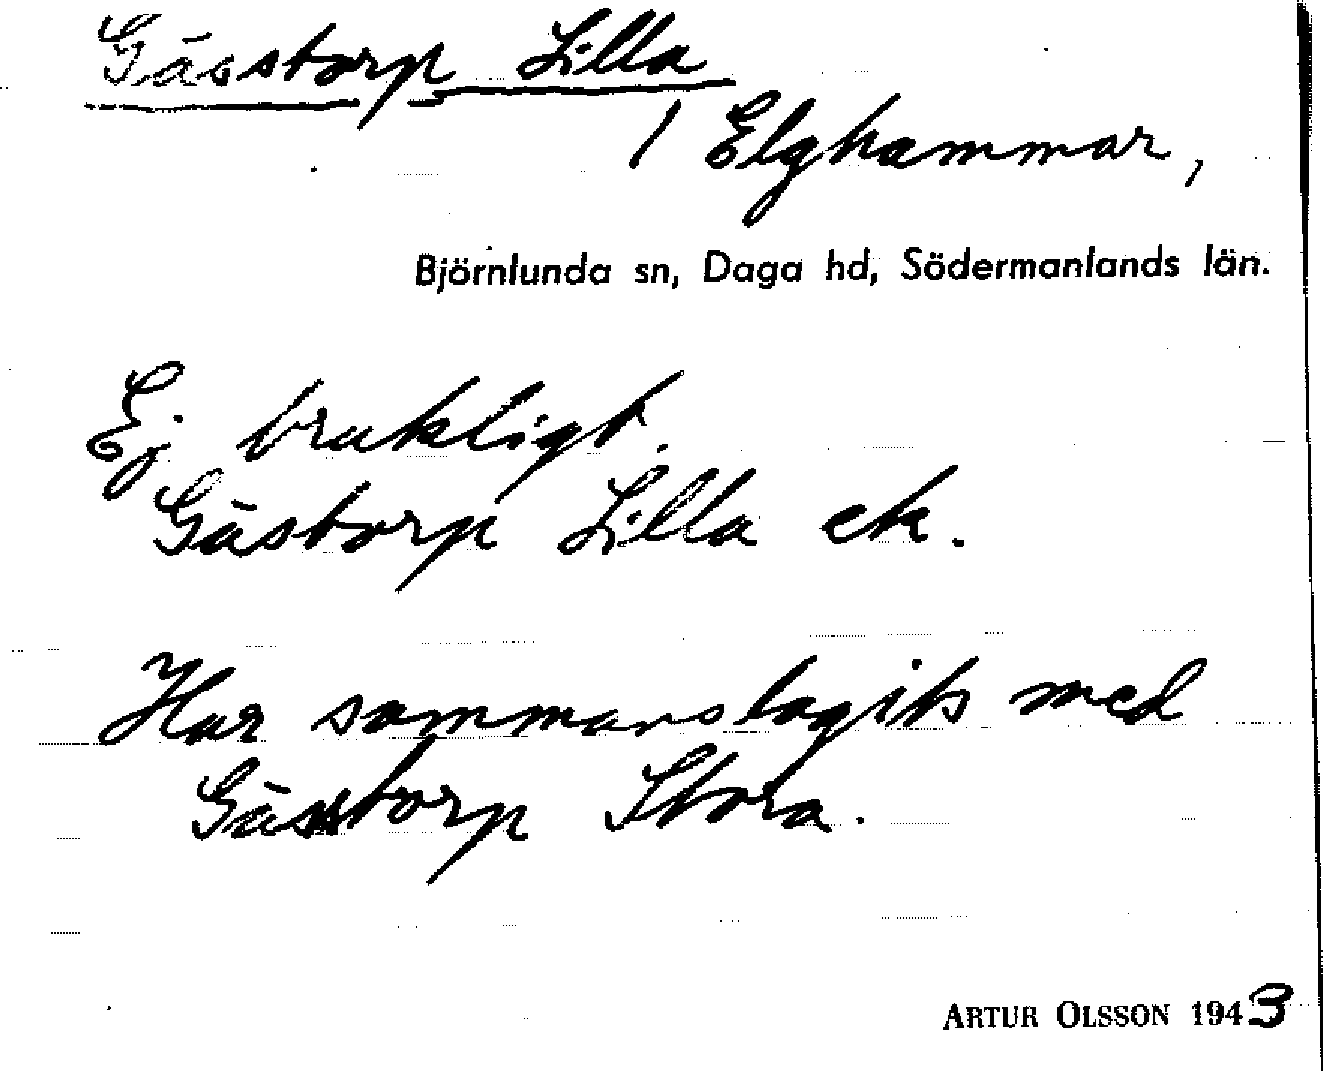 Gässtorp Lilla
/ Elghammar,
Björnlunda sn, Daga hd, Södermanlands län.
Ej brukligt.
Gästorp Lilla ek.
Har sammanslagits med
Gässtorp Stora.
ARTUR OLSSON 1943